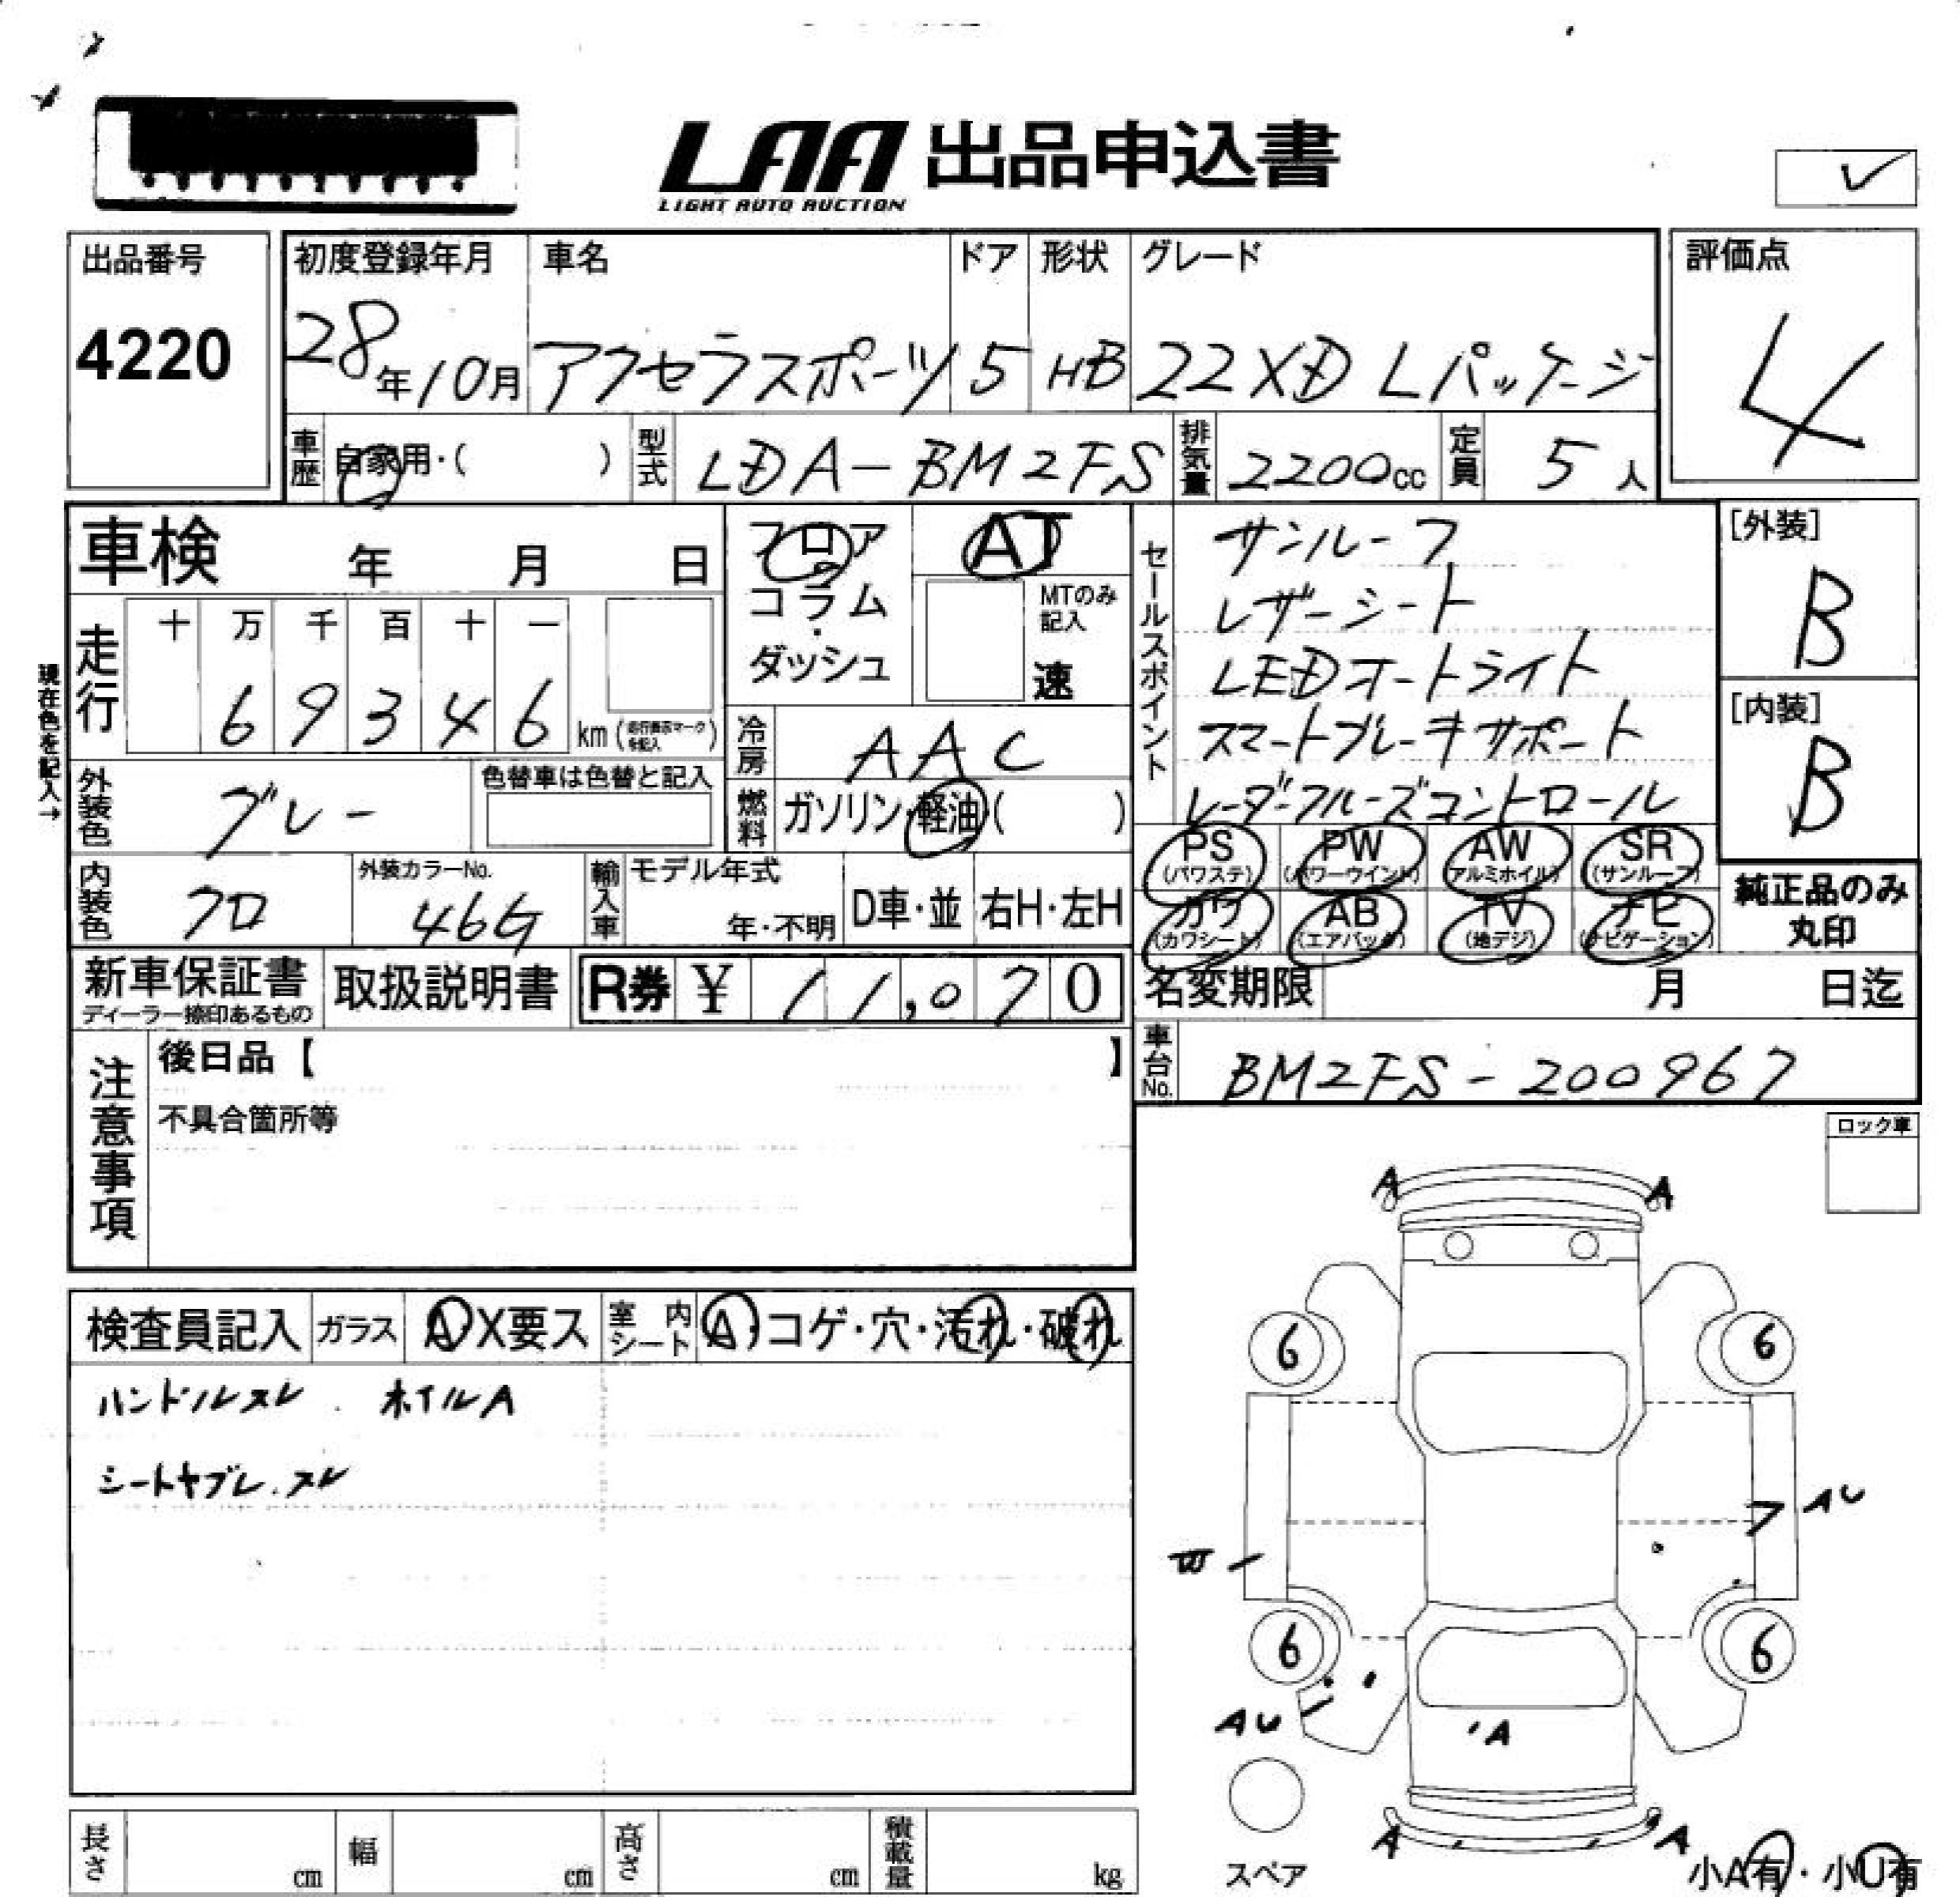 LAA 出品申込書
LIGHT AUTO AUCTION
出品番号
4220
初度登録年月
28年10月
車名
アクセラスポーツ
ドア
5
形状
HB
グレード
22XD Lパッケージ
評価点
4
車歴
自家用・( )
型式
LDA-BM2FS
排気量
2200cc
定員
5人
車検 年 月 日
フロア
コラム
・
ダッシュ
AT
MTのみ
記入
速
セールスポイント
サンルーフ
レザーシート
LEDオートライト
スマートブレーキサポート
レーダークルーズコントロール
[外装]
B
[内装]
B
現在色を記入→
走行
十 万 千 百 十 一
6 9 3 4 6 km
冷房
AAC
外装色
グレー
色替車は色替と記入
燃料
ガソリン・軽油( )
内装色
クロ
外装カラーNo.
46G
輸入車
モデル年式
年・不明
D車・並
右H・左H
PS
(パワステ)
PW
(パワーウインド)
AW
(アルミホイル)
SR
(サンルーフ)
カワ
(カワシート)
AB
(エアバック)
TV
(地デジ)
ナビ
(ナビゲーション)
純正品のみ
丸印
新車保証書
ディーラー捺印あるもの
取扱説明書
R券 ¥ 11,070
名変期限 月 日迄
注意事項
後日品【 】
不具合箇所等
車台No.
BM2FS-200967
ロック車
検査員記入
ガラス
A・X要ス
室内シート
A・コゲ・穴・汚れ・破れ
ハンドルスレ . ホイルA
シートヤブレ.スレ
A
A
6
6
AU
6
6
AU
A
A
A
スペア
小A有・小U有
長さ cm
幅 cm
高さ cm
積載量 kg